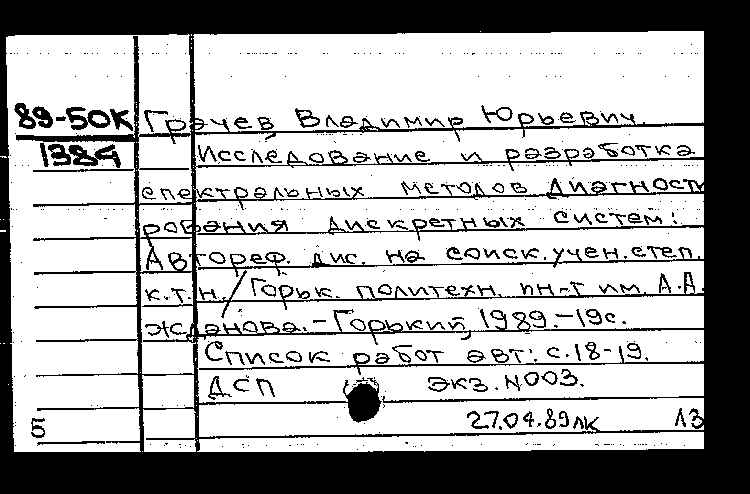 89-50К Грачев Владимир Юрьевич.
1384 Исследование и разработка
спектральных методов диагности
рования дискретных систем:
Автореф. дис. на соиск. учен. степ.
к.т.н./Горьк. политехн. ин-т им. А.А.
Жданова.-Горький, 1989.-19с.
Список работ авт: с.18-19.
ДСП экз. №003.
27.04.89 ЛК
5